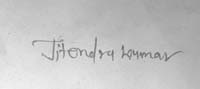 Jitendra kumar